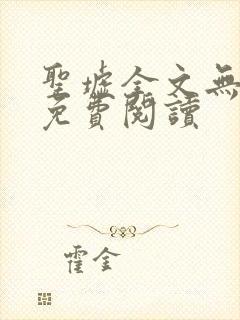 聖墟全文無
免費閱讀
霍金